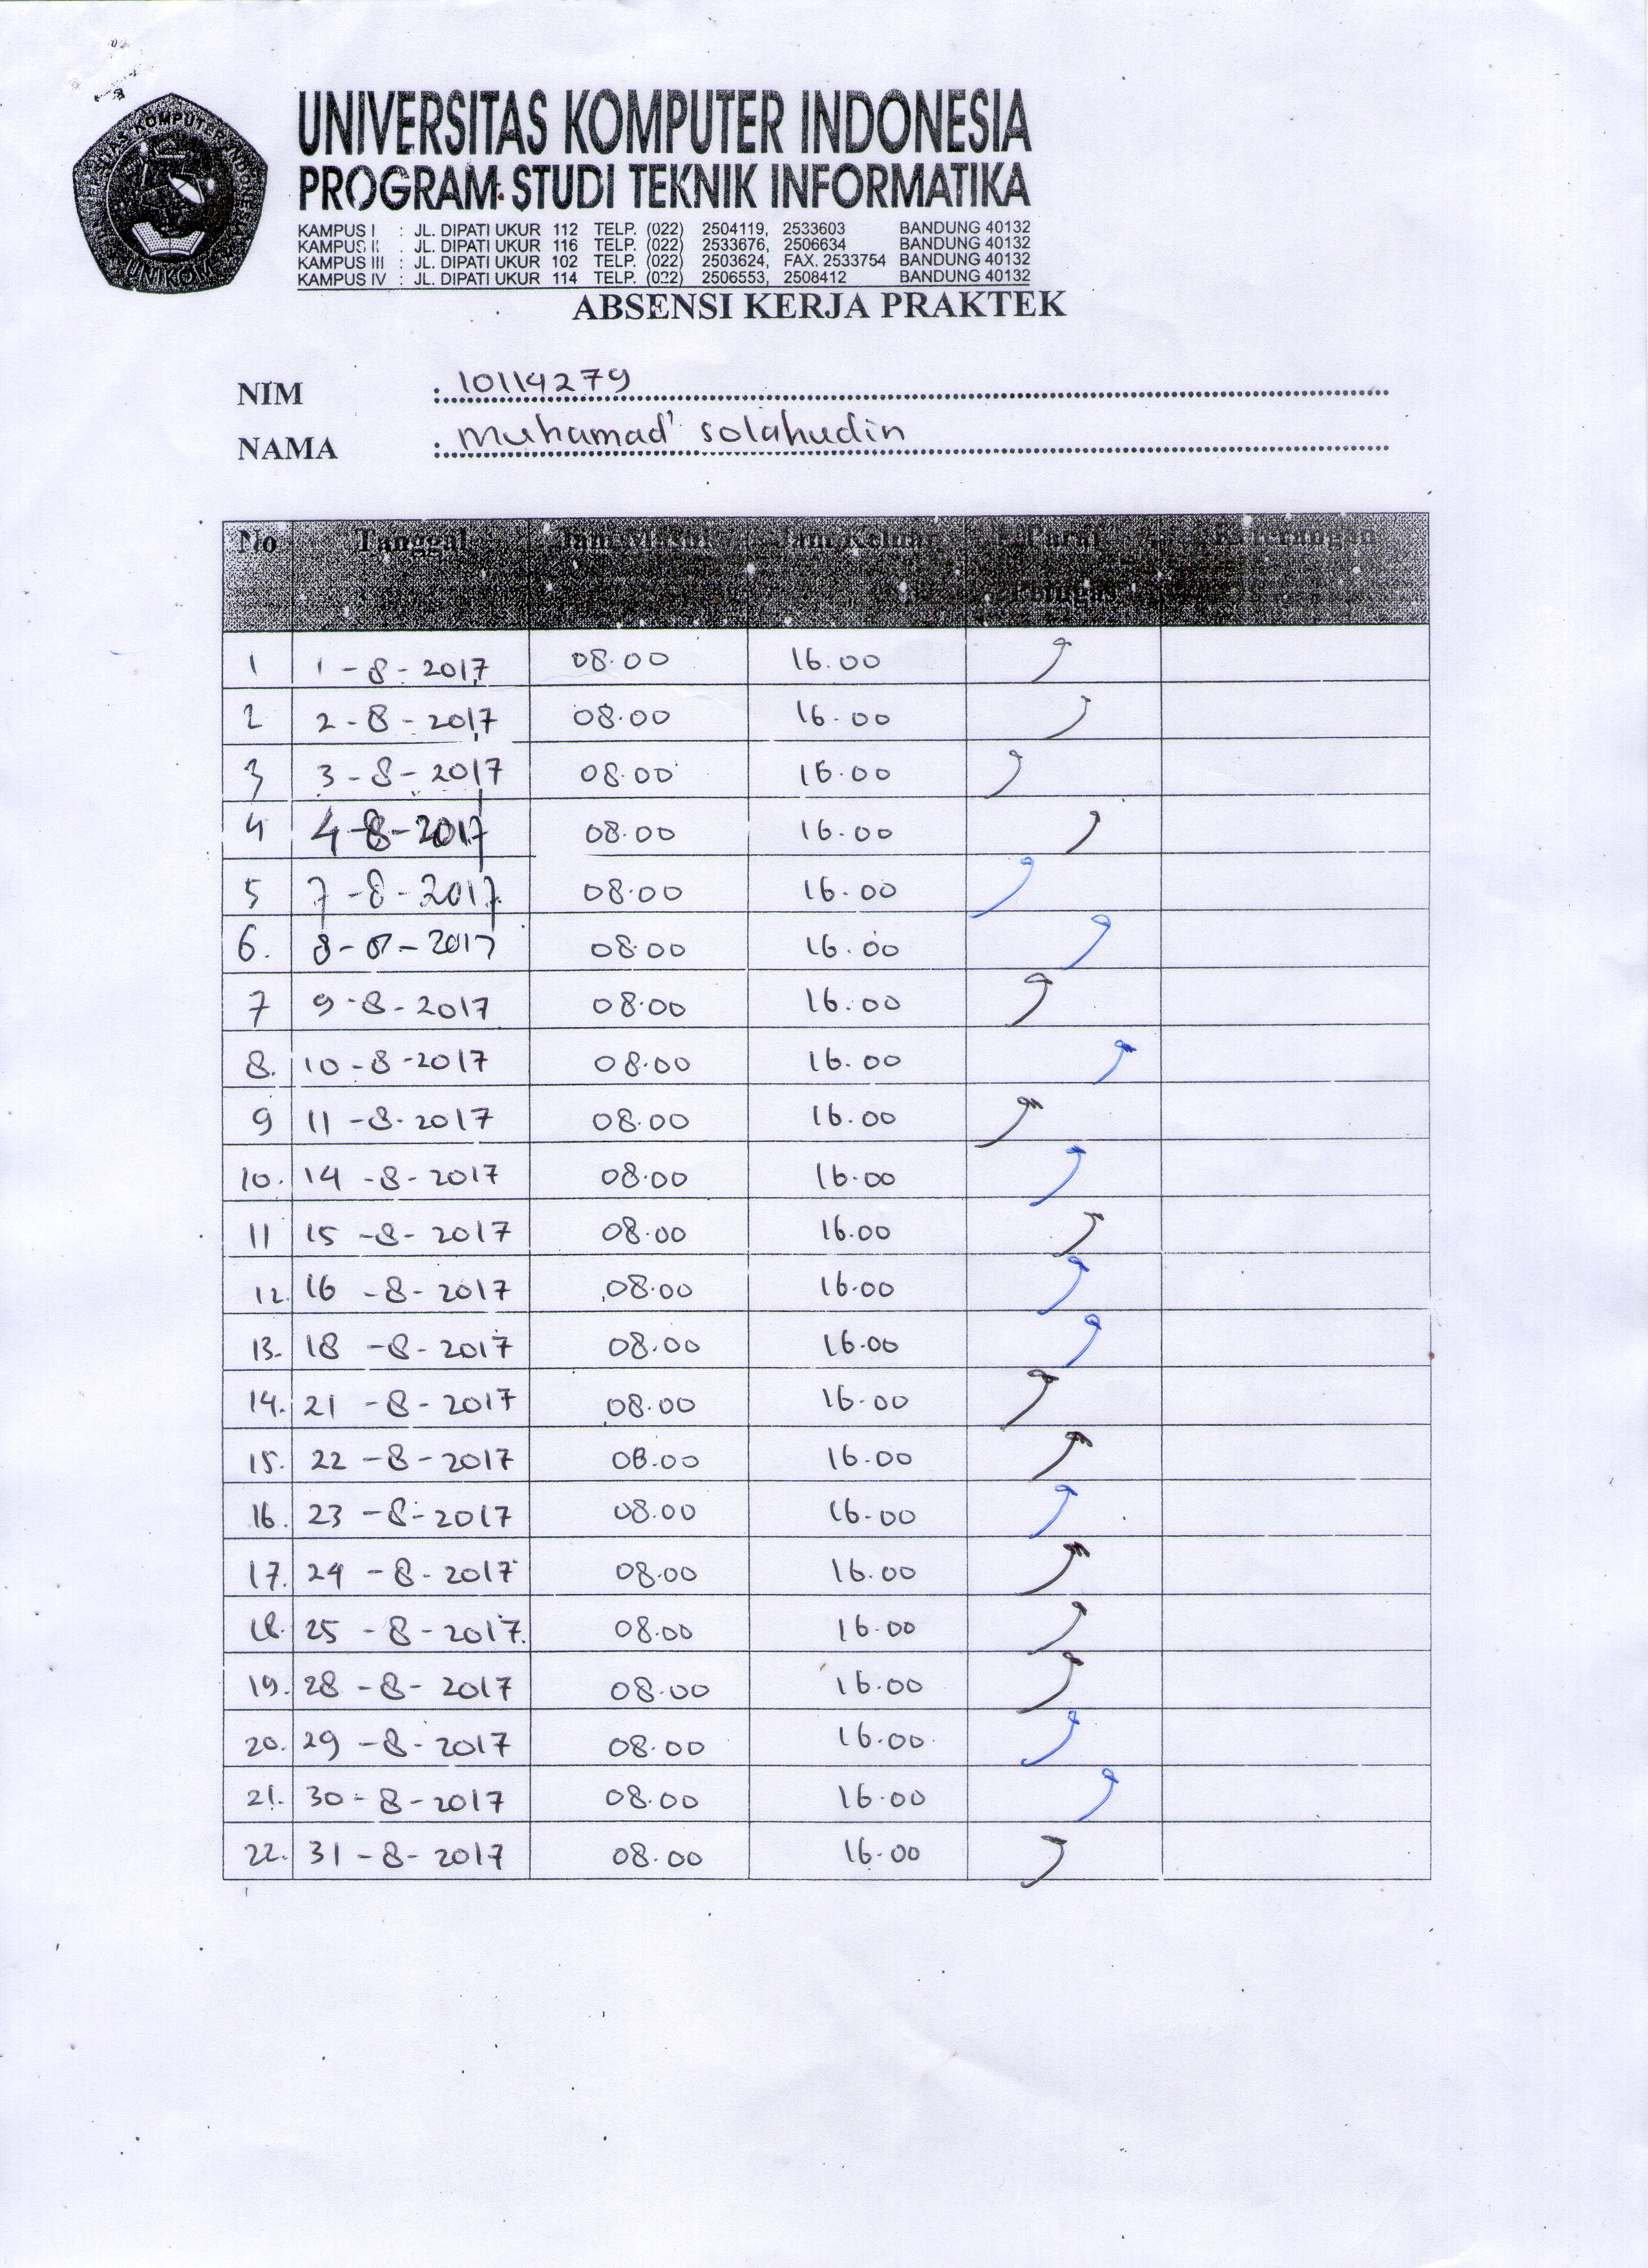 UNIVERSITAS KOMPUTER INDONESIA
UNIKOM
UNIVERSITAS KOMPUTER INDONESIA
PROGRAM STUDI TEKNIK INFORMATIKA
KAMPUS I : JL. DIPATI UKUR 112 TELP. (022) 2504119, 2533603 BANDUNG 40132
KAMPUS II : JL. DIPATI UKUR 116 TELP. (022) 2533676, 2506634 BANDUNG 40132
KAMPUS III : JL. DIPATI UKUR 102 TELP. (022) 2503624, FAX. 2533754 BANDUNG 40132
KAMPUS IV : JL. DIPATI UKUR 114 TELP. (022) 2506553, 2508412 BANDUNG 40132
ABSENSI KERJA PRAKTEK
NIM : 10114279
NAMA : Muhamad solahudin
No Tanggal Jam Masuk Jam Keluar Paraf Keterangan
Petugas
1 1-8-2017 08.00 16.00
2 2-8-2017 08.00 16.00
3 3-8-2017 08.00 16.00
4 4-8-2017 08.00 16.00
5 7-8-2017 08.00 16.00
6. 8-8-2017 08.00 16.00
7 9-8-2017 08.00 16.00
8. 10-8-2017 08.00 16.00
9 11-8-2017 08.00 16.00
10. 14-8-2017 08.00 16.00
11 15-8-2017 08.00 16.00
12. 16-8-2017 08.00 16.00
13. 18-8-2017 08.00 16.00
14. 21-8-2017 08.00 16.00
15. 22-8-2017 08.00 16.00
16. 23-8-2017 08.00 16.00
17. 24-8-2017 08.00 16.00
18. 25-8-2017. 08.00 16.00
19. 28-8-2017 08.00 16.00
20. 29-8-2017 08.00 16.00
21. 30-8-2017 08.00 16.00
22. 31-8-2017 08.00 16.00